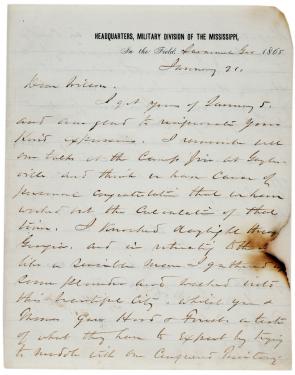 HEADQUARTERS, MILITARY DIVISION OF THE MISSISSIPPI,
In the Field, Savannah Geo 1865
January 21.
Dear Wilson.
I got yours of January 5.
and am glad to reciprocate your
Kind expressions. I remember well
our talks at the Camp Fire at
and think we have Cause of
personal congratulation that we have
worked out the Calculations of that
time. I Knocked daylight thro
Georgia, and in retreating to the
like a sensible man I gathered up
some plunder and walked into
this beautiful City. whilst you &
Thomas gave Hood & Forrest a taste
of what they have to expect by trying
to meddle with our Conquered Territory